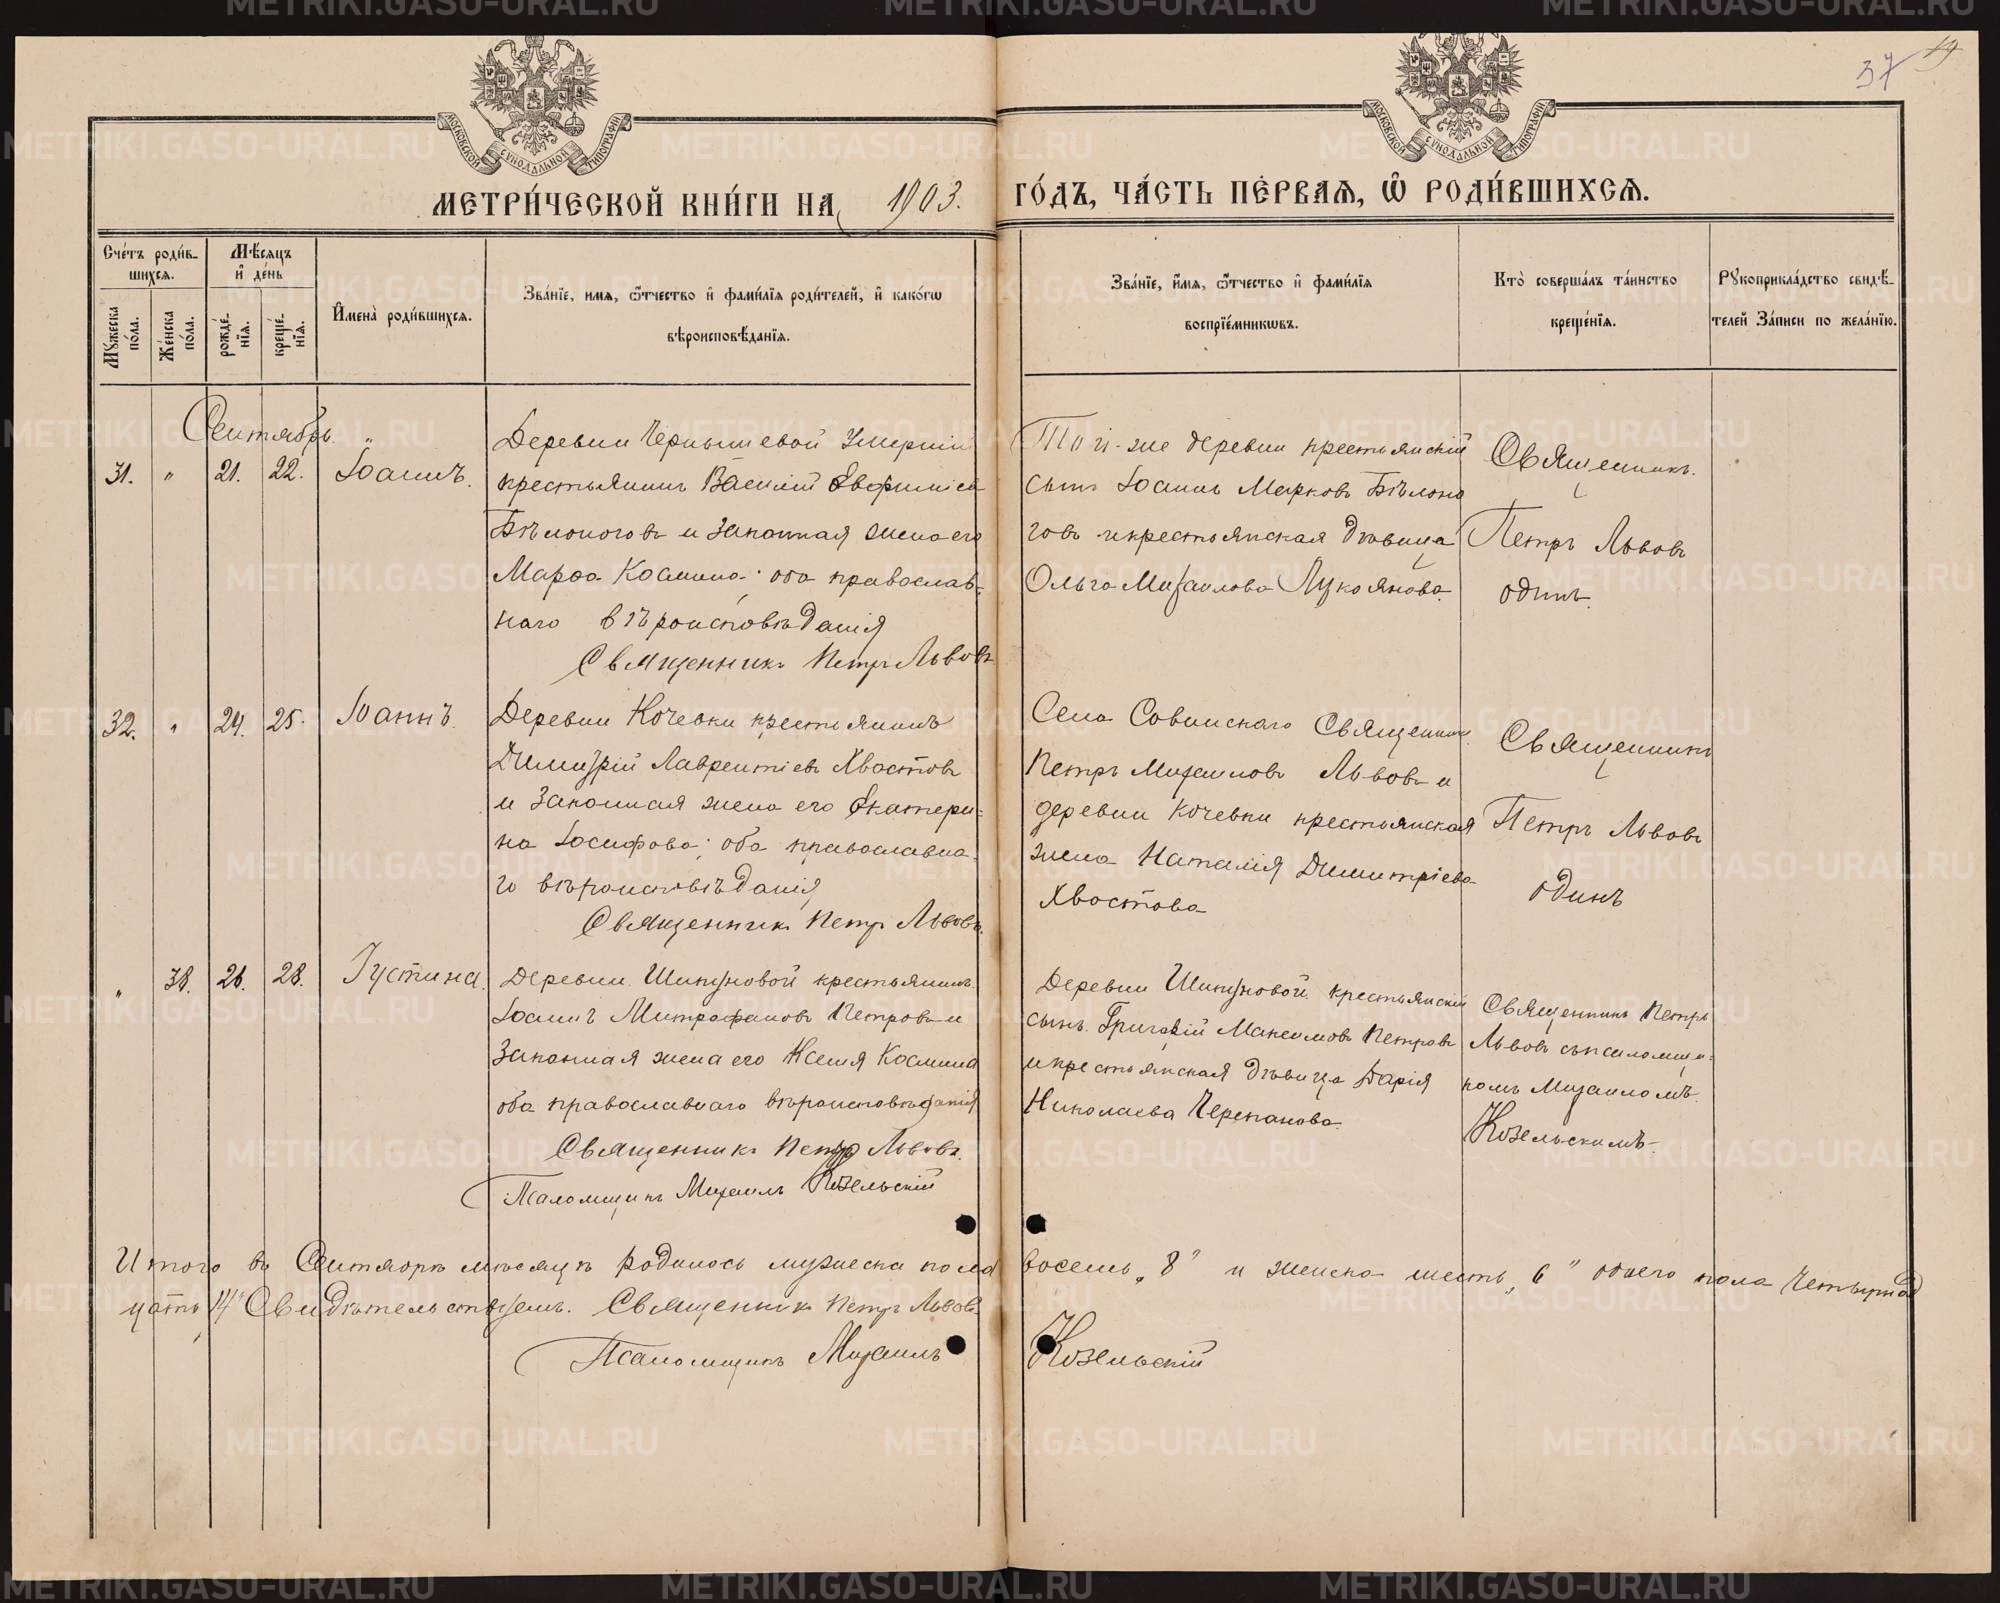 37 19
МОСКОВСКОЙ СѴНОДАЛЬНОЙ ТИПОГРАФІИ
МОСКОВСКОЙ СѴНОДАЛЬНОЙ ТИПОГРАФІИ
МЕТРИ́ЧЕСКОЙ КНИ́ГИ НА 1903. ГО́ДЪ, ЧА́СТЬ ПЕ́РВАѦ, Ѡ҆ РОДИ́ВШИХСѦ.
Сче́тъ роди́в-
шихсѧ.
Мꙋ́жеска по́ла.
Же́нска по́ла.
Мѣ́сѧцъ
и҆ де́нь
рожде́-
нїѧ.
креще́-
нїѧ.
И҆мена̀ роди́вшихсѧ.
Зва́нїе, имѧ, ѻ҆́тчество и҆ фами́лїѧ роди́телей, и҆ како́гѡ
вѣроисповѣ́данїѧ.
Зва́нїе, и҆́мѧ, ѻ҆́тчество и҆ фами́лїѧ
воспрїе́мникѡвъ.
Кто̀ соверша́лъ та́инство
креще́нїѧ.
Рꙋкоприкла́дство свидѣ́-
телей За́писи по жела́нїю.
Сентябрь.
31. " 21. 22. Іоаннъ.
Деревни Чернышевой Умершій
крестьянинъ Василій Евфиміев
Бѣлоноговъ и законная жена его
Марѳа Космина; оба православ-
наго вѣроисповѣданія
Священникъ Петръ Львовъ
Той-же деревни крестьянскій
сынъ Іоаннъ Марковъ Бѣлоно
говъ и крестьянская дѣвица
Ольга Михаилова Лукоянова.
Священникъ.
Петръ Львовъ
одинъ.
32. " 24. 25. Іоаннъ.
Деревни Кочевки крестьянинъ
Димитрій Лаврентіевъ Хвостовъ
и законная жена его Екатери-
на Іосифова; оба православна-
го вѣроисповѣданія,
Священникъ Петръ Львовъ.
Села Совинскаго Священникъ
Петръ Михаиловъ Львовъ и
деревни Кочевки крестьянская
жена Наталія Димитріева
Хвостова
Священникъ
Петръ Львовъ
одинъ
" 38. 26. 28. Іустина.
Деревни Шипуновой крестьянинъ
Іоаннъ Митрофановъ Петровъ и
законная жена его Ксенія Космина
оба православнаго вѣроисповѣданія
Священникъ Петръ Львовъ.
Псаломщикъ Михаилъ Козельскій
Деревни Шипуновой крестьянскій
сынъ Григорій Максимовъ Петровъ
и крестьянская дѣвица Дарія
Николаева Черепанова.
Священникъ Петръ
Львовъ съ псаломщи-
комъ Михаиломъ.
Козельскимъ.
Итого въ Сентябрѣ мѣсяцѣ родилось мужеска пола восемь „8" и женска шесть „6" обоего пола четырнад
цать „14" Свидѣтельствуемъ. Священникъ Петръ Львовъ
Псаломщикъ Михаилъ Козельскій
METRIKI.GASO-URAL.RU